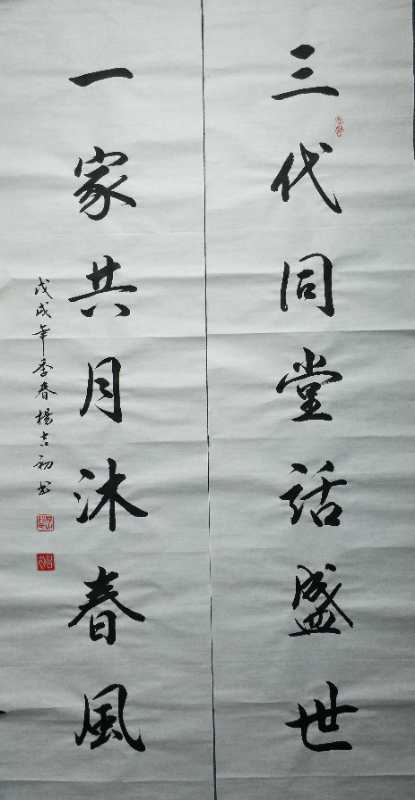 三代同堂話盛世
一家共月沐春風
戊戌年季春楊吉初书